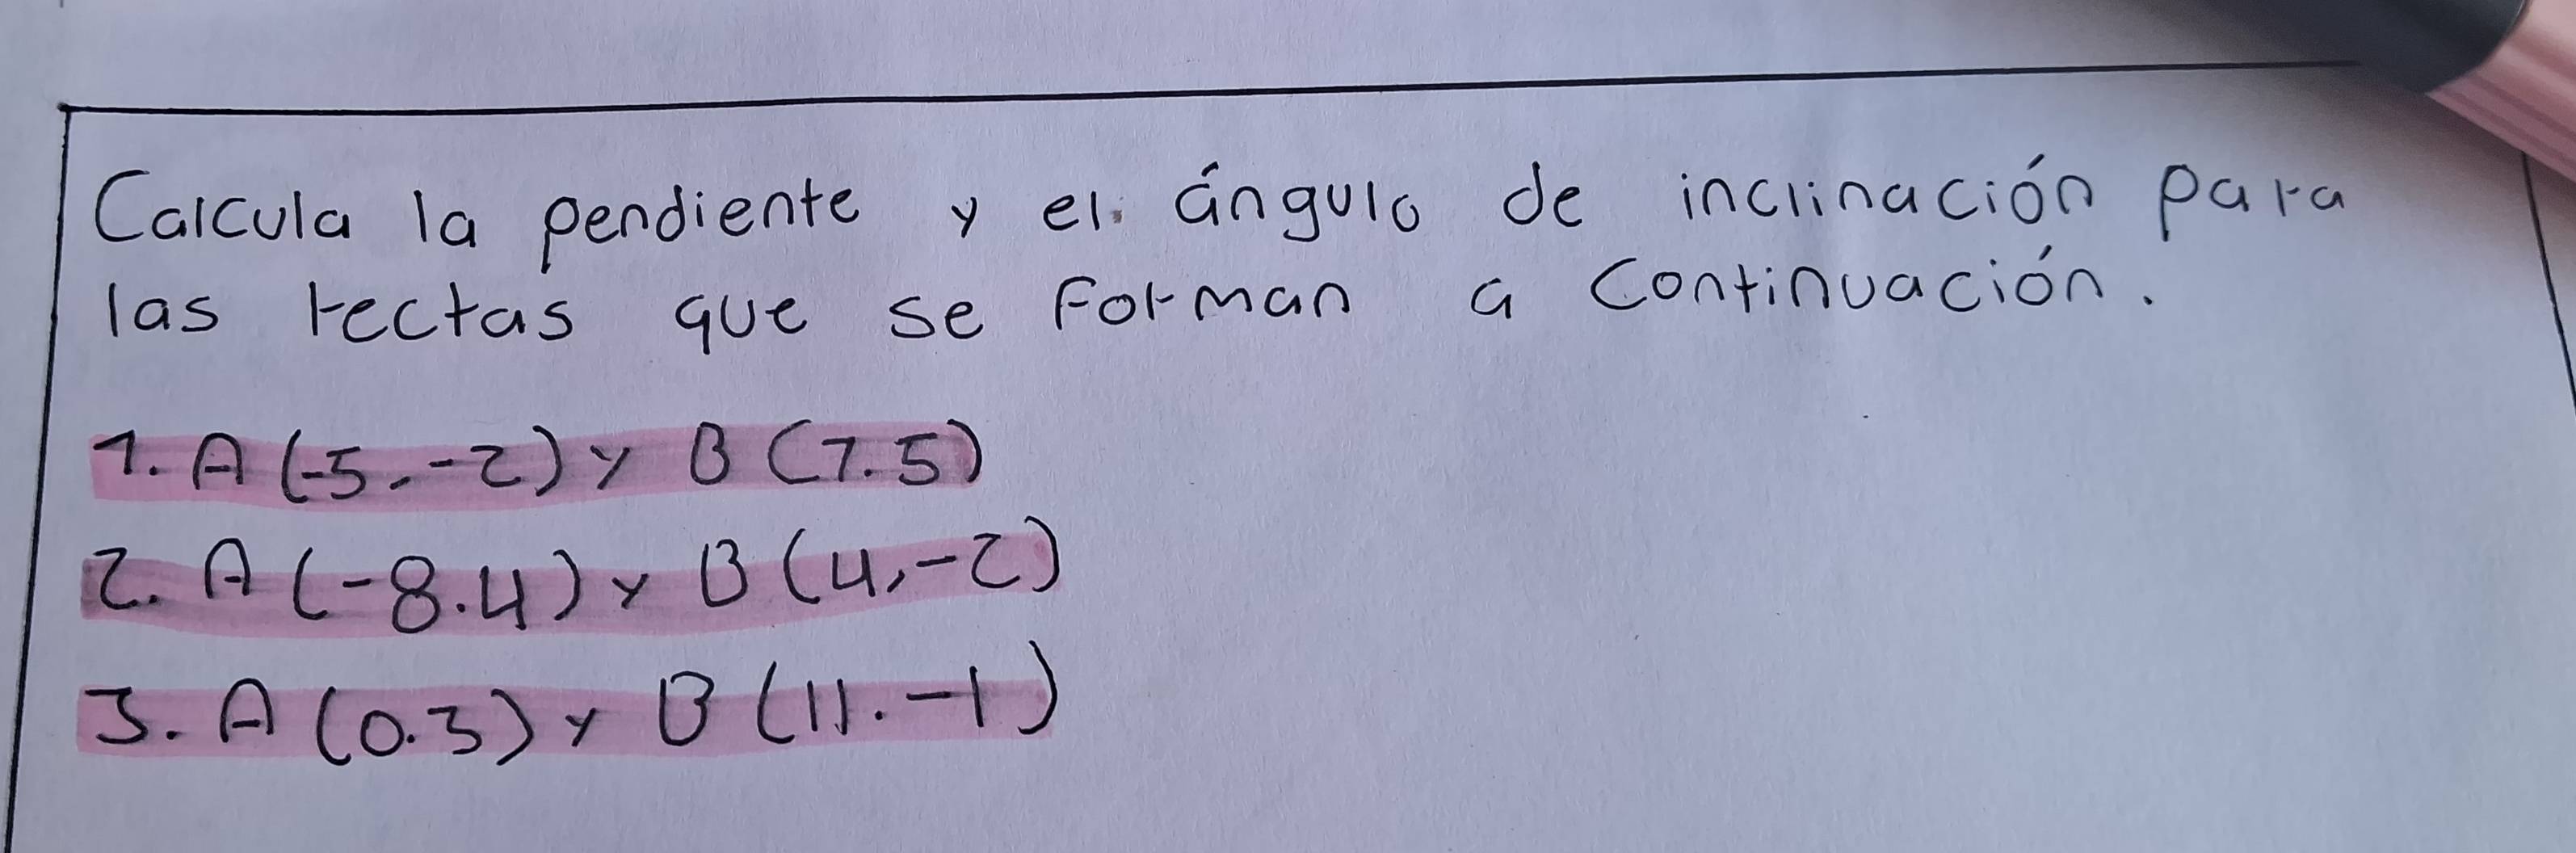 Calcula la pendiente y el ángulo de inclinación para
las rectas que se forman a continuación.
1. A (-5.-2) y B (7.5)
2. A (-8.4) y B (4,-2)
3. A (0.3) y B (11.-1)